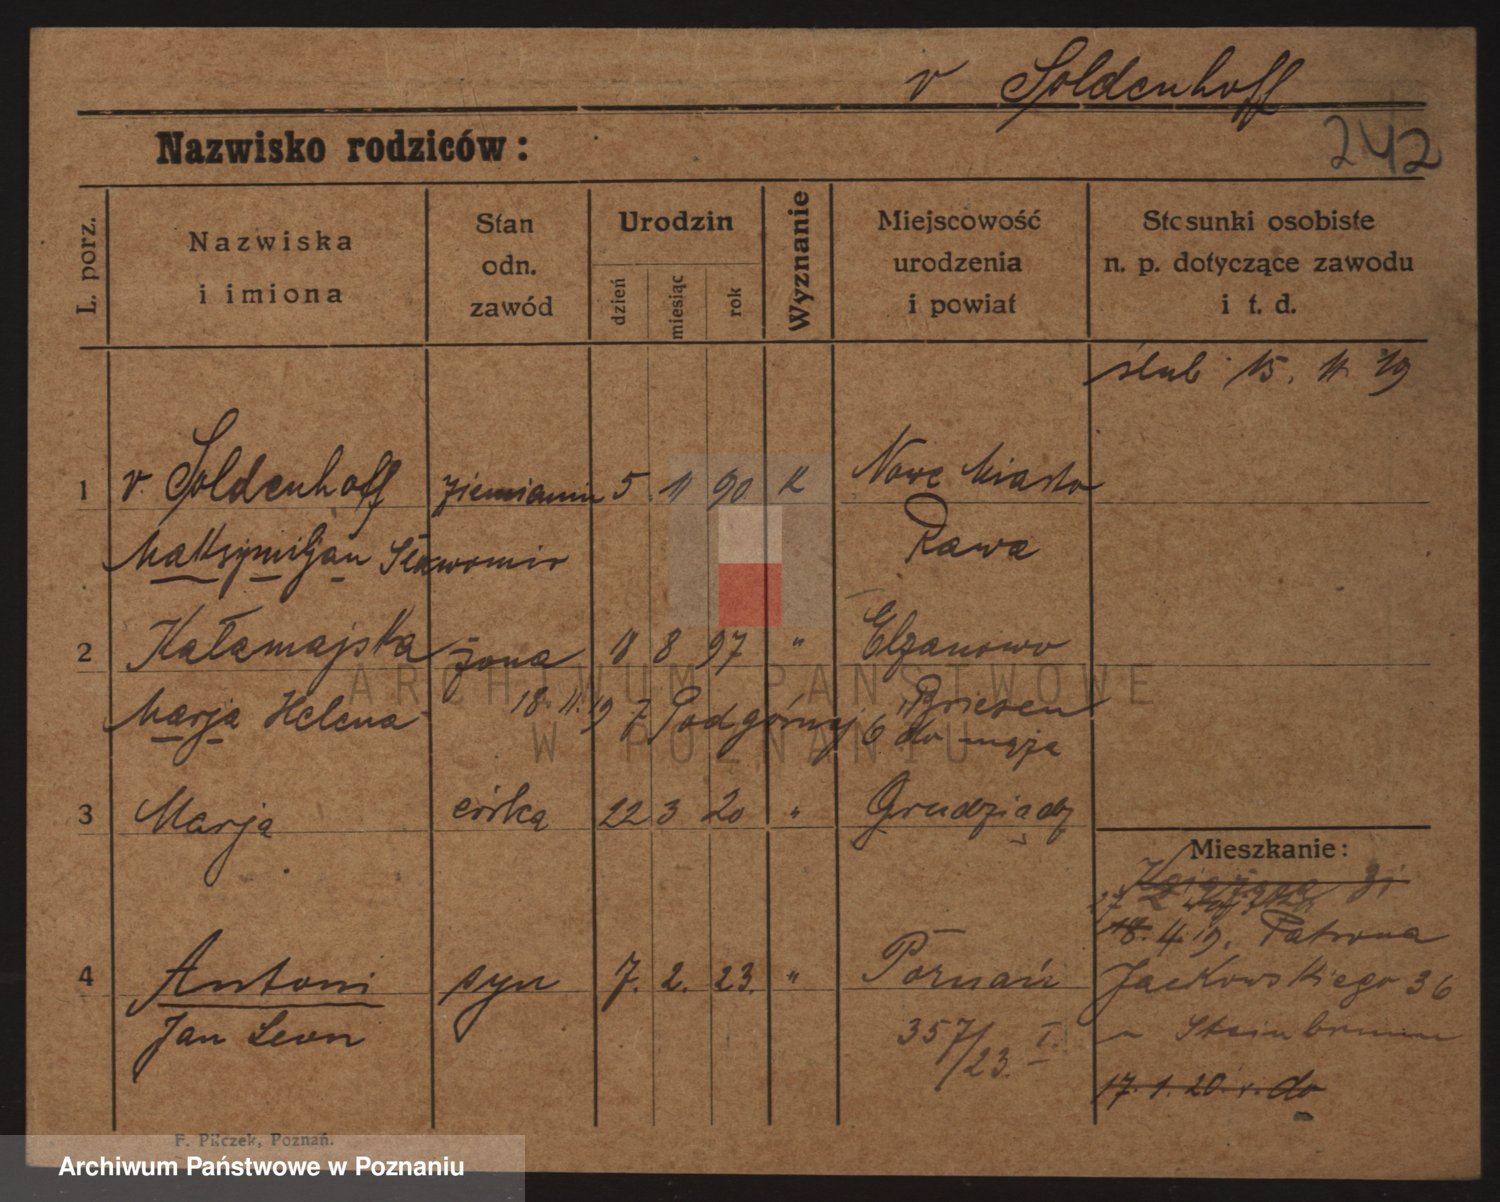 v Soldenhoff
Nazwisko rodziców:
242
L. porz.
Nazwiska
i imiona
Stan
odn.
zawód
Urodzin
dzień
miesiąc
rok
Wyznanie
Miejscowość
urodzenia
i powiat
Stosunki osobiste
n. p. dotyczące zawodu
i t. d.
ślub 15. 11. 19
1 v. Soldenhoff ziemianin 5 11 90 K Nowe Miasto
Maksymiljan Sławomir Rawa
2 Kałamajska żona 18 8 97 " Elzanowo
Marja Helena 18. 11. 19 z Podgórnej 6 do męża
Briesen
3 Marja córka 22 3 20 " Grudziądz
Mieszkanie:
18. 4. 19. Patrona
4 Antoni syn 7. 2. 23. " Poznań
Jackowskiego 36
Jan Leon 357/23. I.
17. 1. 20. v. do
F. Pilczek, Poznań.
ARCHIWUM PAŃSTWOWE
W POZNANIU
Archiwum Państwowe w Poznaniu